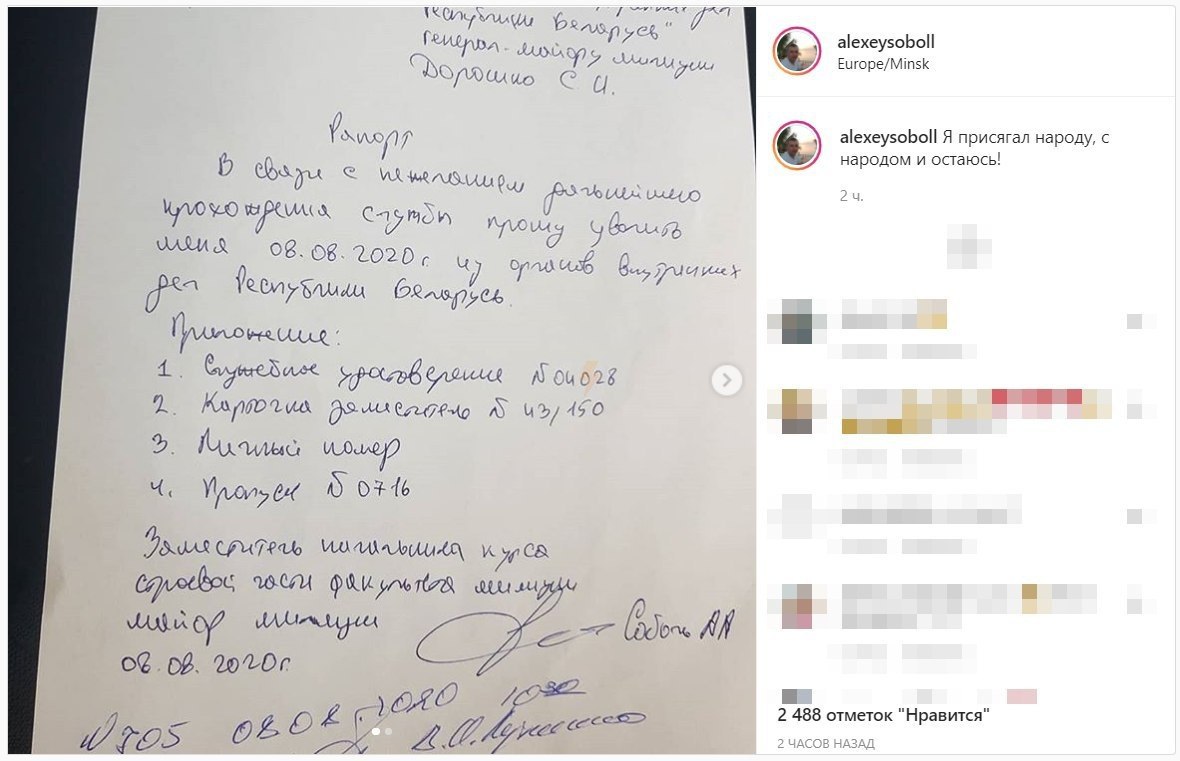 Республики Беларусь"
генерал-майору милиции
Дорошко С.И.
Рапорт
В связи с нежеланием дальнейшего
прохождения службы прошу уволить
меня 08.08.2020г. из органов внутренних
дел Республики Беларусь.
Приложение:
1. Служебное удостоверение №04028
2. Карточка заместитель № 43/150
3. Личный номер
4. Пропуск № 0716
Заместитель начальника курса
строевой части факультета милиции
майор милиции
Соболь АА
08.08.2020г.
№705 08.08.2020
alexeysoboll
Europe/Minsk
alexeysoboll Я присягал народу, с
народом и остаюсь!
2 ч.
2 488 отметок "Нравится"
2 ЧАСОВ НАЗАД